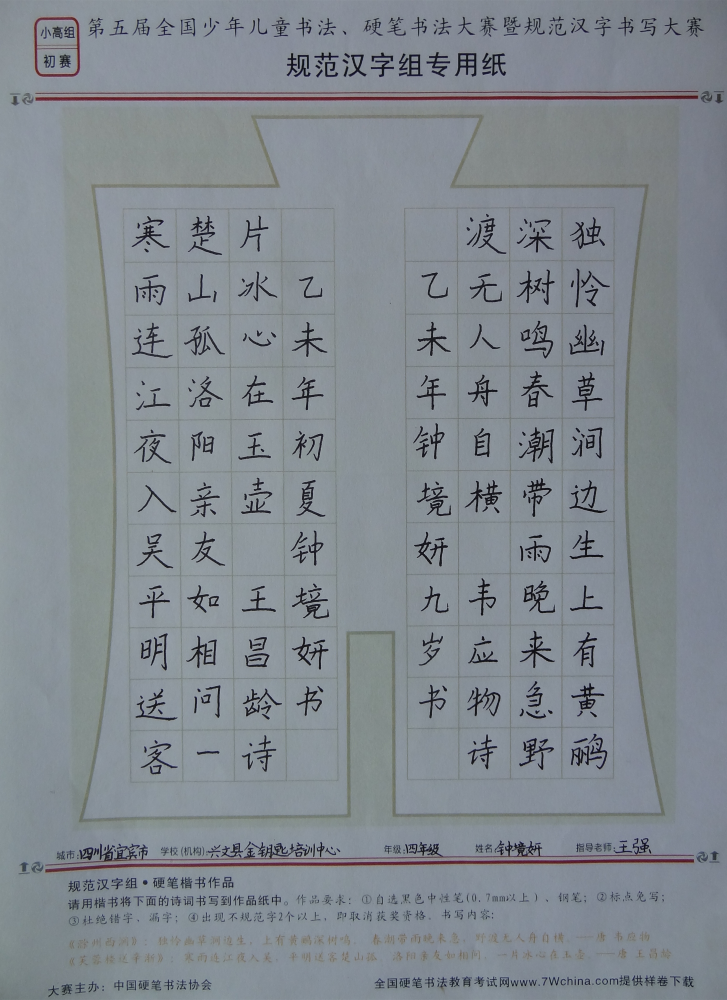 小高组
初赛
第五届全国少年儿童书法、硬笔书法大赛暨规范汉字书写大赛
规范汉字组专用纸
独怜幽草涧边生上有黄鹂
深树鸣春潮带雨晚来急野
渡无人舟自横 韦应物诗
乙未年钟境妍九岁书
寒雨连江夜入吴平明送客
楚山孤洛阳亲友如相问一
片冰心在玉壶 王昌龄诗
乙未年初夏钟境妍书
城市:四川省宜宾市 学校(机构):兴文县金钥匙培训中心 年级:四年级 姓名:钟境妍 指导老师:王强
规范汉字组·硬笔楷书作品
请用楷书将下面的诗词书写到作品纸中。作品要求：①自选黑色中性笔(0.7mm以上)、钢笔；②标点免写；
③杜绝错字、漏字；④出现不规范字2个以上，即取消获奖资格。书写内容：
《滁州西涧》：独怜幽草涧边生，上有黄鹂深树鸣。春潮带雨晚来急，野渡无人舟自横。——唐 韦应物
《芙蓉楼送辛渐》：寒雨连江夜入吴，平明送客楚山孤。洛阳亲友如相问，一片冰心在玉壶。——唐 王昌龄
大赛主办：中国硬笔书法协会 全国硬笔书法教育考试网www.7Wchina.com提供样卷下载